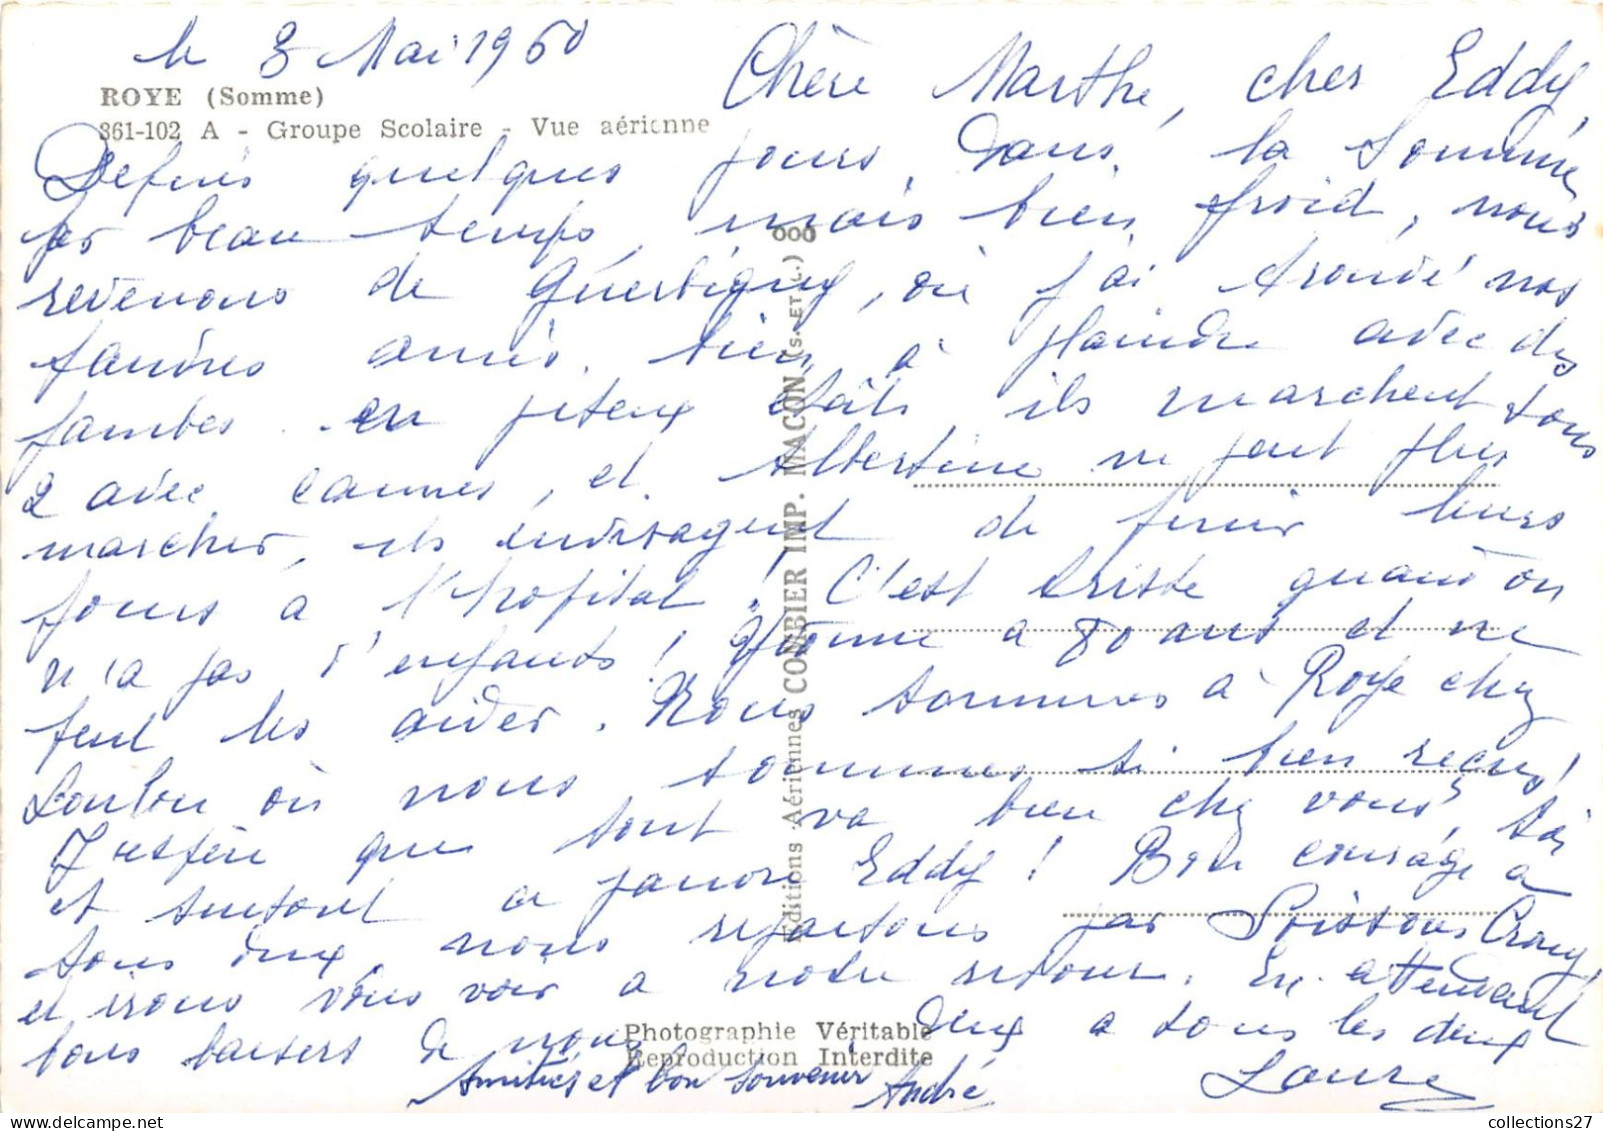 le 8 Mai 1960
ROYE (Somme)
361-102 A - Groupe Scolaire - Vue aérienne
Chère Marthe, cher Eddy,
Depuis quelques jours dans la Somme
par beau temps, mais bien froid, nous
revenons de Guerbigny, où j'ai trouvé nos
pauvres amis bien à plaindre avec des
jambes en piteux états ils marchent tous
2 avec cannes, et Albertine ne peut plus
marcher, ils envisagent de finir leurs
jours à l'hopital ! C'est triste quand on
n'a pas d'enfants ! Yvonne a 80 ans et ne
peut les aider. Nous sommes à Roye chez
Loulou où nous sommes si bien reçus !
J'espère que tout va bien chez vous,
et surtout ce pauvre Eddy ! Bon courage à
tous deux, nous repartons par Soissons Crouy,
et irons vous voir à notre retour. En attendant
bons baisers de nous deux a tous les deux
Laure
Amitiés et bon souvenir André
Editions Aériennes COMBIER IMP. MACON (S. ET L.)
Photographie Véritable
Reproduction Interdite
collections27